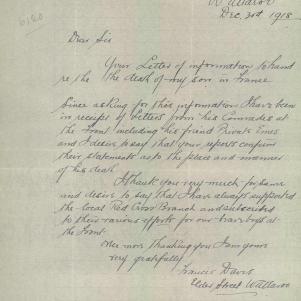 Wallaroo
Dec. 31st 1918
6,20
Dear Sir
Your Letter of information to hand
re the the death of my son in France
Since asking for this information I have been
in receipt of Letters from his Comrades at
the Front including his friend Private Enes
and I desire to say that your reports confirm
their statements as to the place and manner
of his death
I thank you very much for same
and desire to say that I have always supported
the local Red Cross Branch and subscribed
to their various efforts for our brave boys at
the Front.
once more thanking you I am yours
very gratefully
Francis Davis
Elder Street Wallaroo